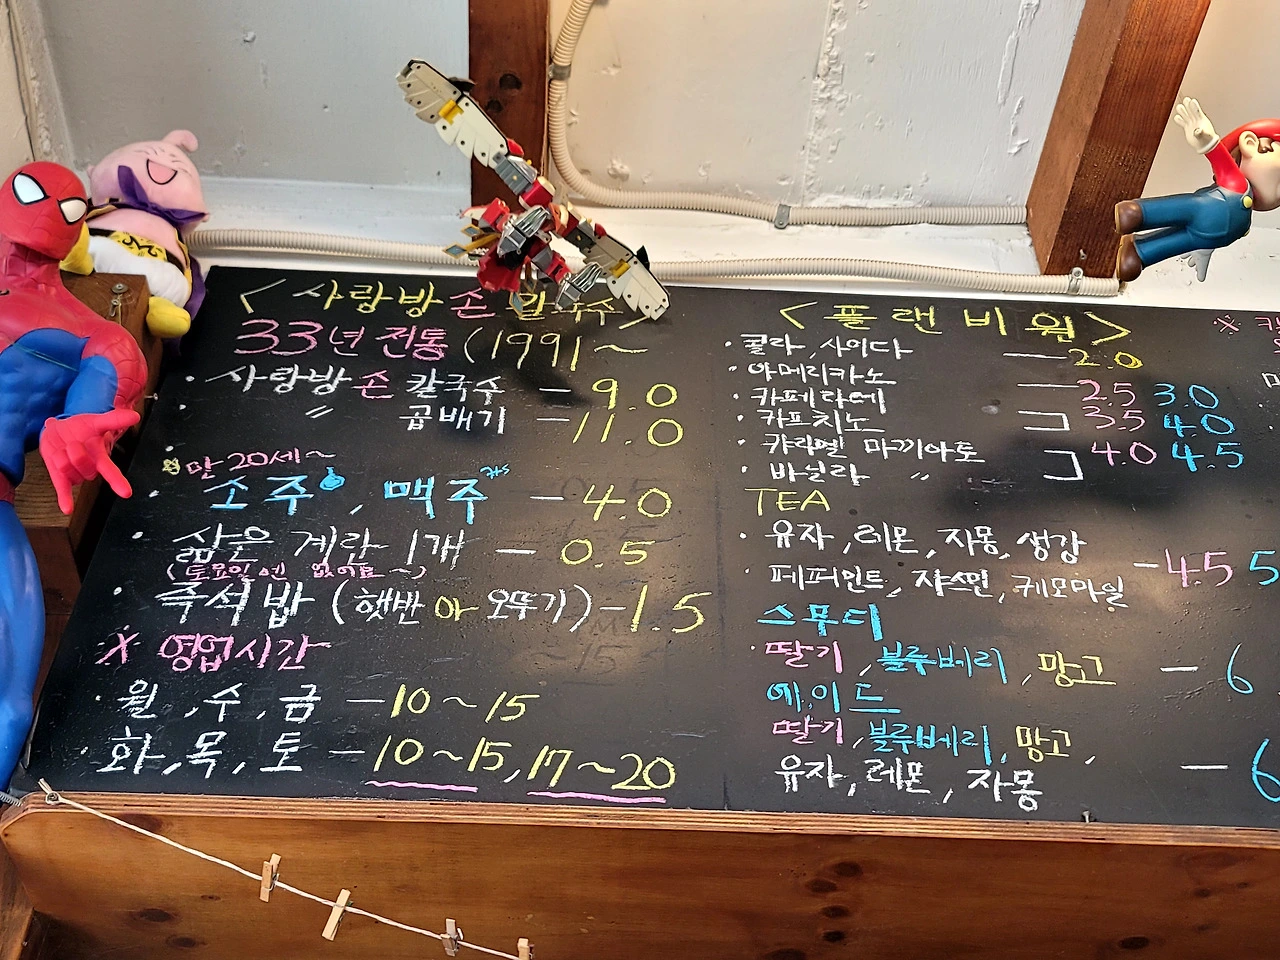 <사랑방손칼국수>
33년 전통 (1991~
· 사랑방 손 칼국수 - 9.0
· 〃 곱배기 - 11.0
만 20세~
· 소주, 맥주 - 4.0
· 삶은 계란 1개 - 0.5
(토요일엔 없어요~)
· 즉석밥 (햇반 or 오뚜기) - 1.5
※ 영업시간
· 월, 수, 금 - 10~15
· 화, 목, 토 - 10~15, 17~20
<플랜비원>
· 콜라, 사이다 — 2.0
· 아메리카노 — 2.5 3.0
· 카페라떼
· 카프치노 3.5 4.0
· 캬라멜 마끼아또
· 바닐라 〃 4.0 4.5
TEA
· 유자, 레몬, 자몽, 생강
· 페퍼민트, 쟈스민, 캐모마일 - 4.5 5
스무디
· 딸기, 블루베리, 망고 - 6
에이드
딸기, 블루베리, 망고,
유자, 레몬, 자몽 - 6